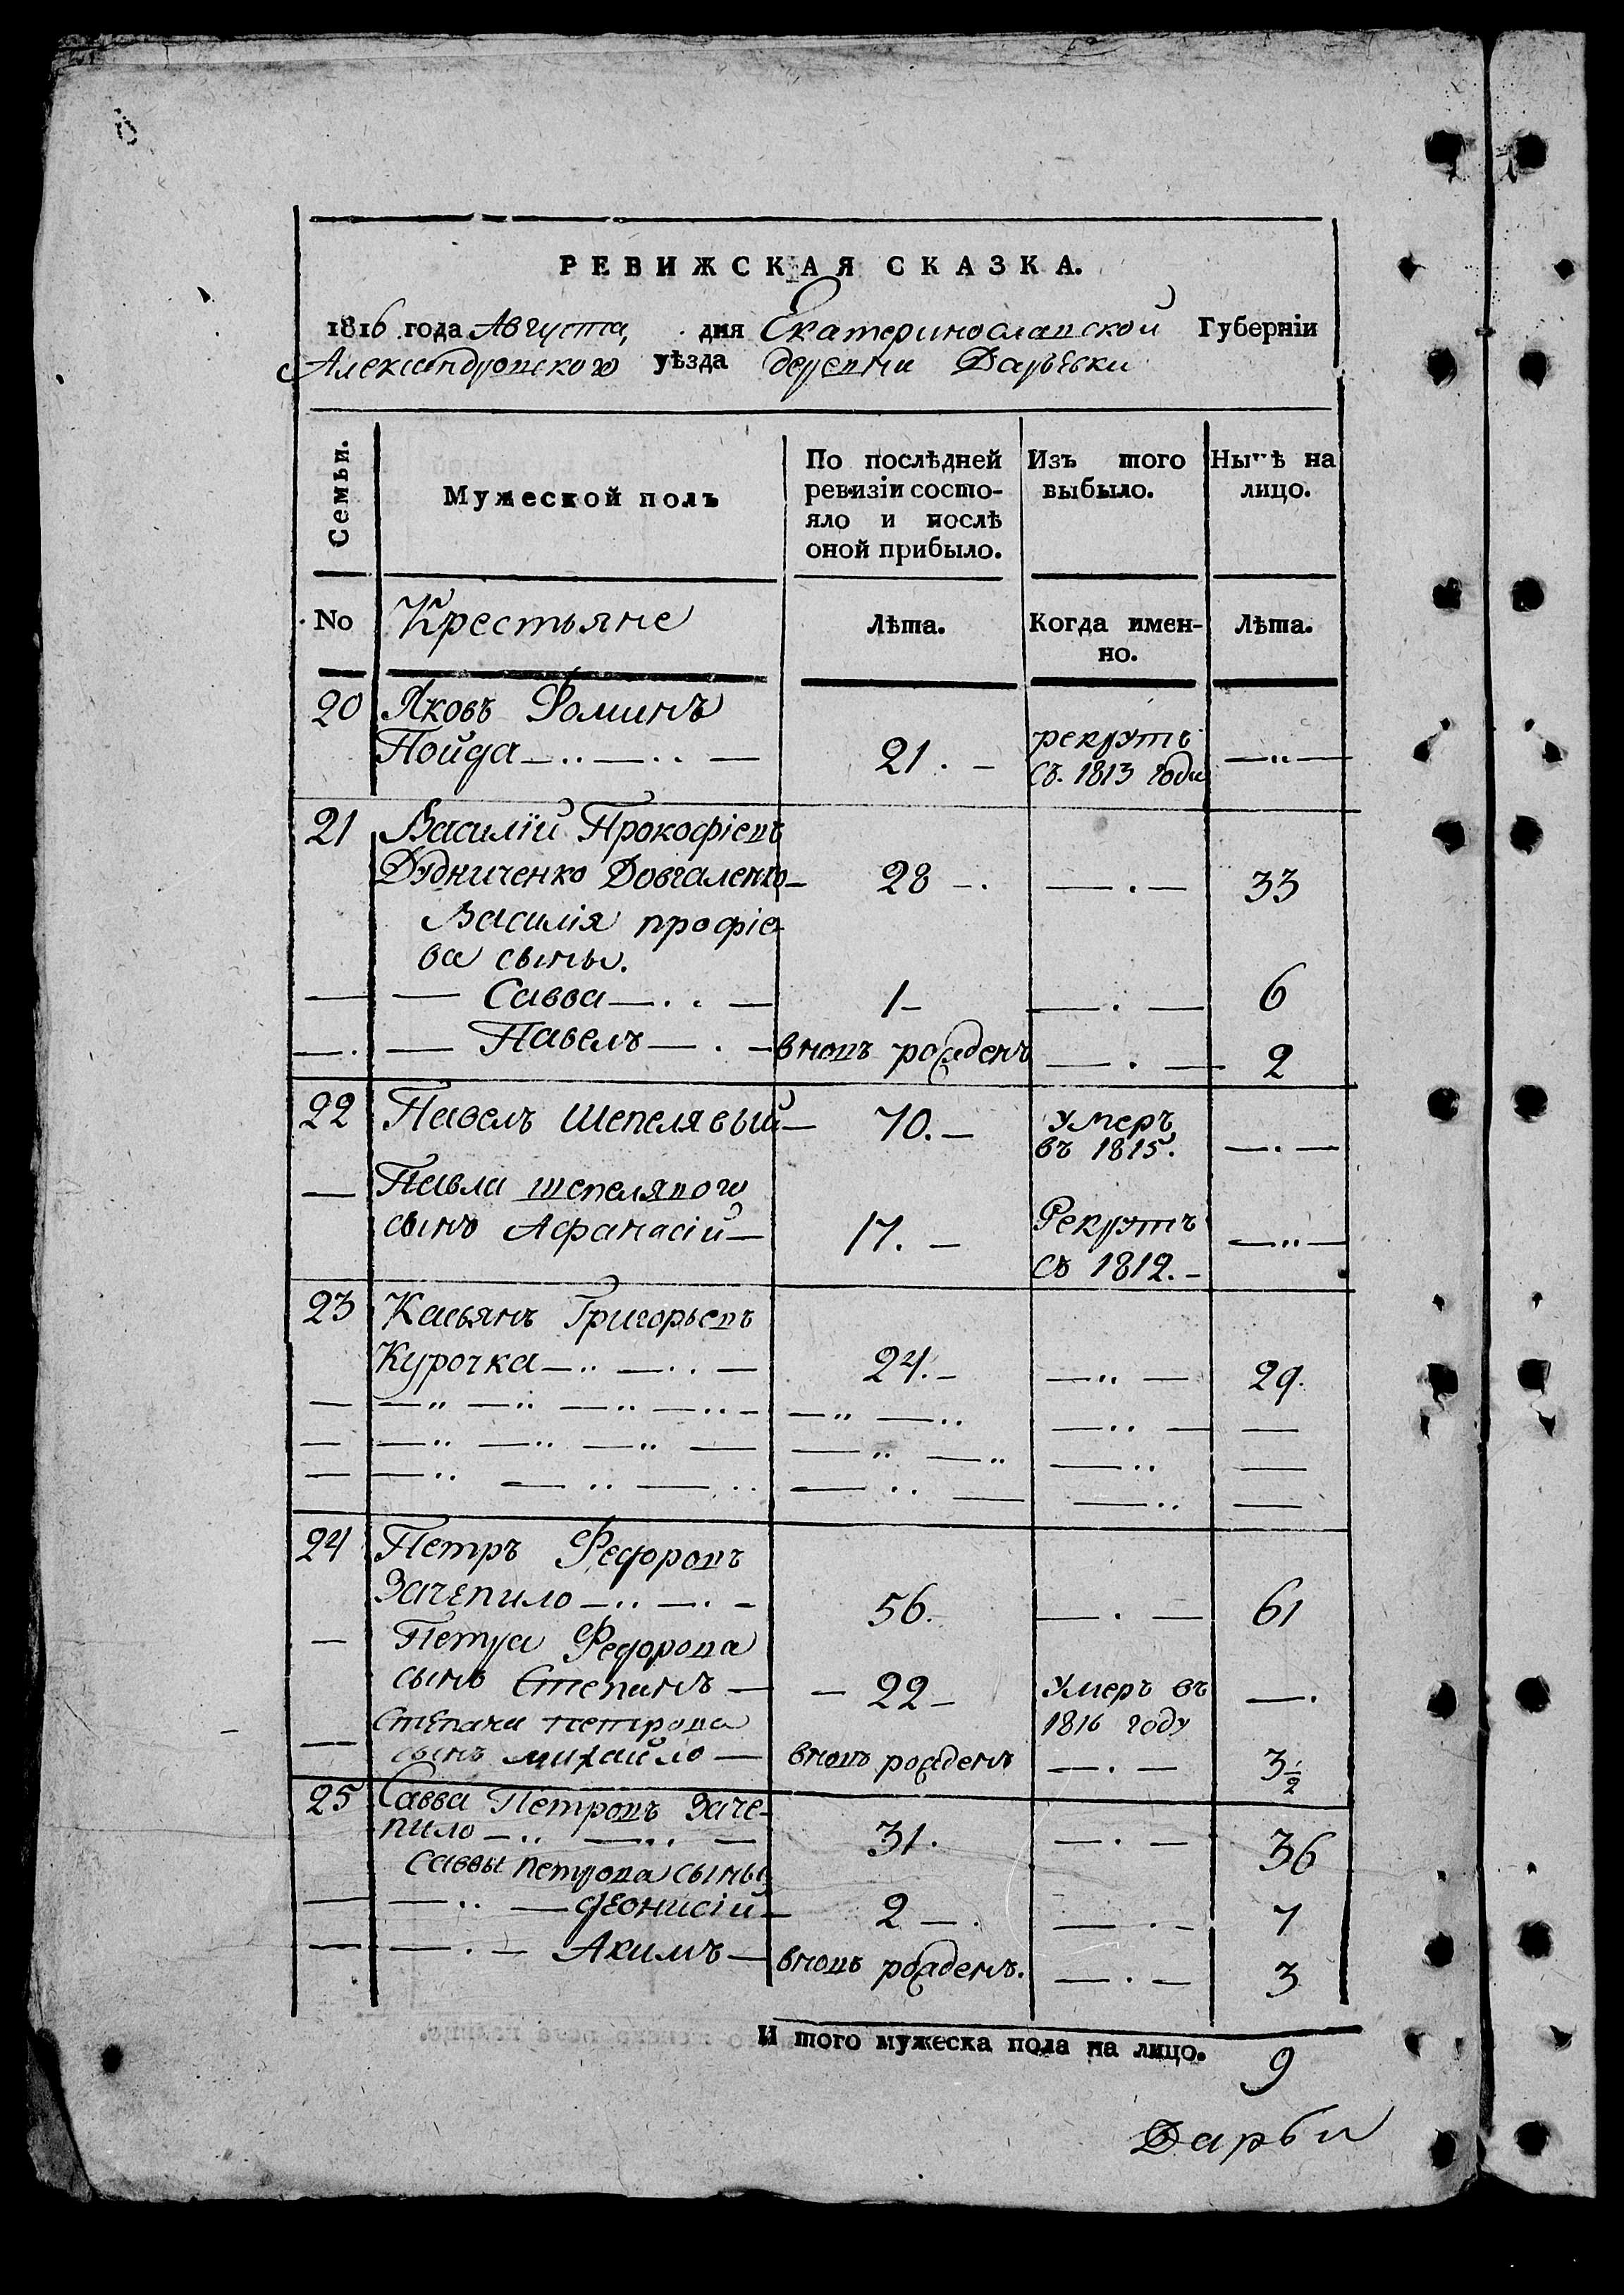 РЕВИЖСКАЯ СКАЗКА.
1816 года Августа, дня Екатеринославской Губерніи
Александровского уѣзда деревни Дарьевки
Семьи.
Мужеской полъ
По послѣдней
ревизіи состо-
яло и послѣ
оной прибыло.
Изъ того
выбыло.
Нынѣ на
лицо.
No Крестьяне Лѣта. Когда имен-
но. Лѣта.
20 Яковъ Фоминъ
Пойда 21. рекрутъ
съ. 1813 года
21 Василій Прокофіевъ
Дудниченко Довгаленко 28 33
Василія профіе
ва сыны.
Савва 1 6
Павелъ вновь рожденъ 2
22 Павелъ Шепелявый 70. умеръ
въ 1815.
Павла шепелявого
сынъ Афанасій 17. Рекрутъ
съ 1812.
23 Касьянъ Григорьевъ
Курочка 24. 29.
24 Петръ Федоровъ
Зачепило 56. 61
Петра Федорова
сынъ Степанъ 22 Умеръ въ
1816 году
Степана Петрова
сынъ михайло вновь рожденъ 3 1/2
25 Савва Петровъ Заче-
пило 31. 36
Саввы Петрова сыны
Деонисій 2 7
Акимъ вновь рожденъ. 3
И того мужеска пола на лицо. 9
Дарьи